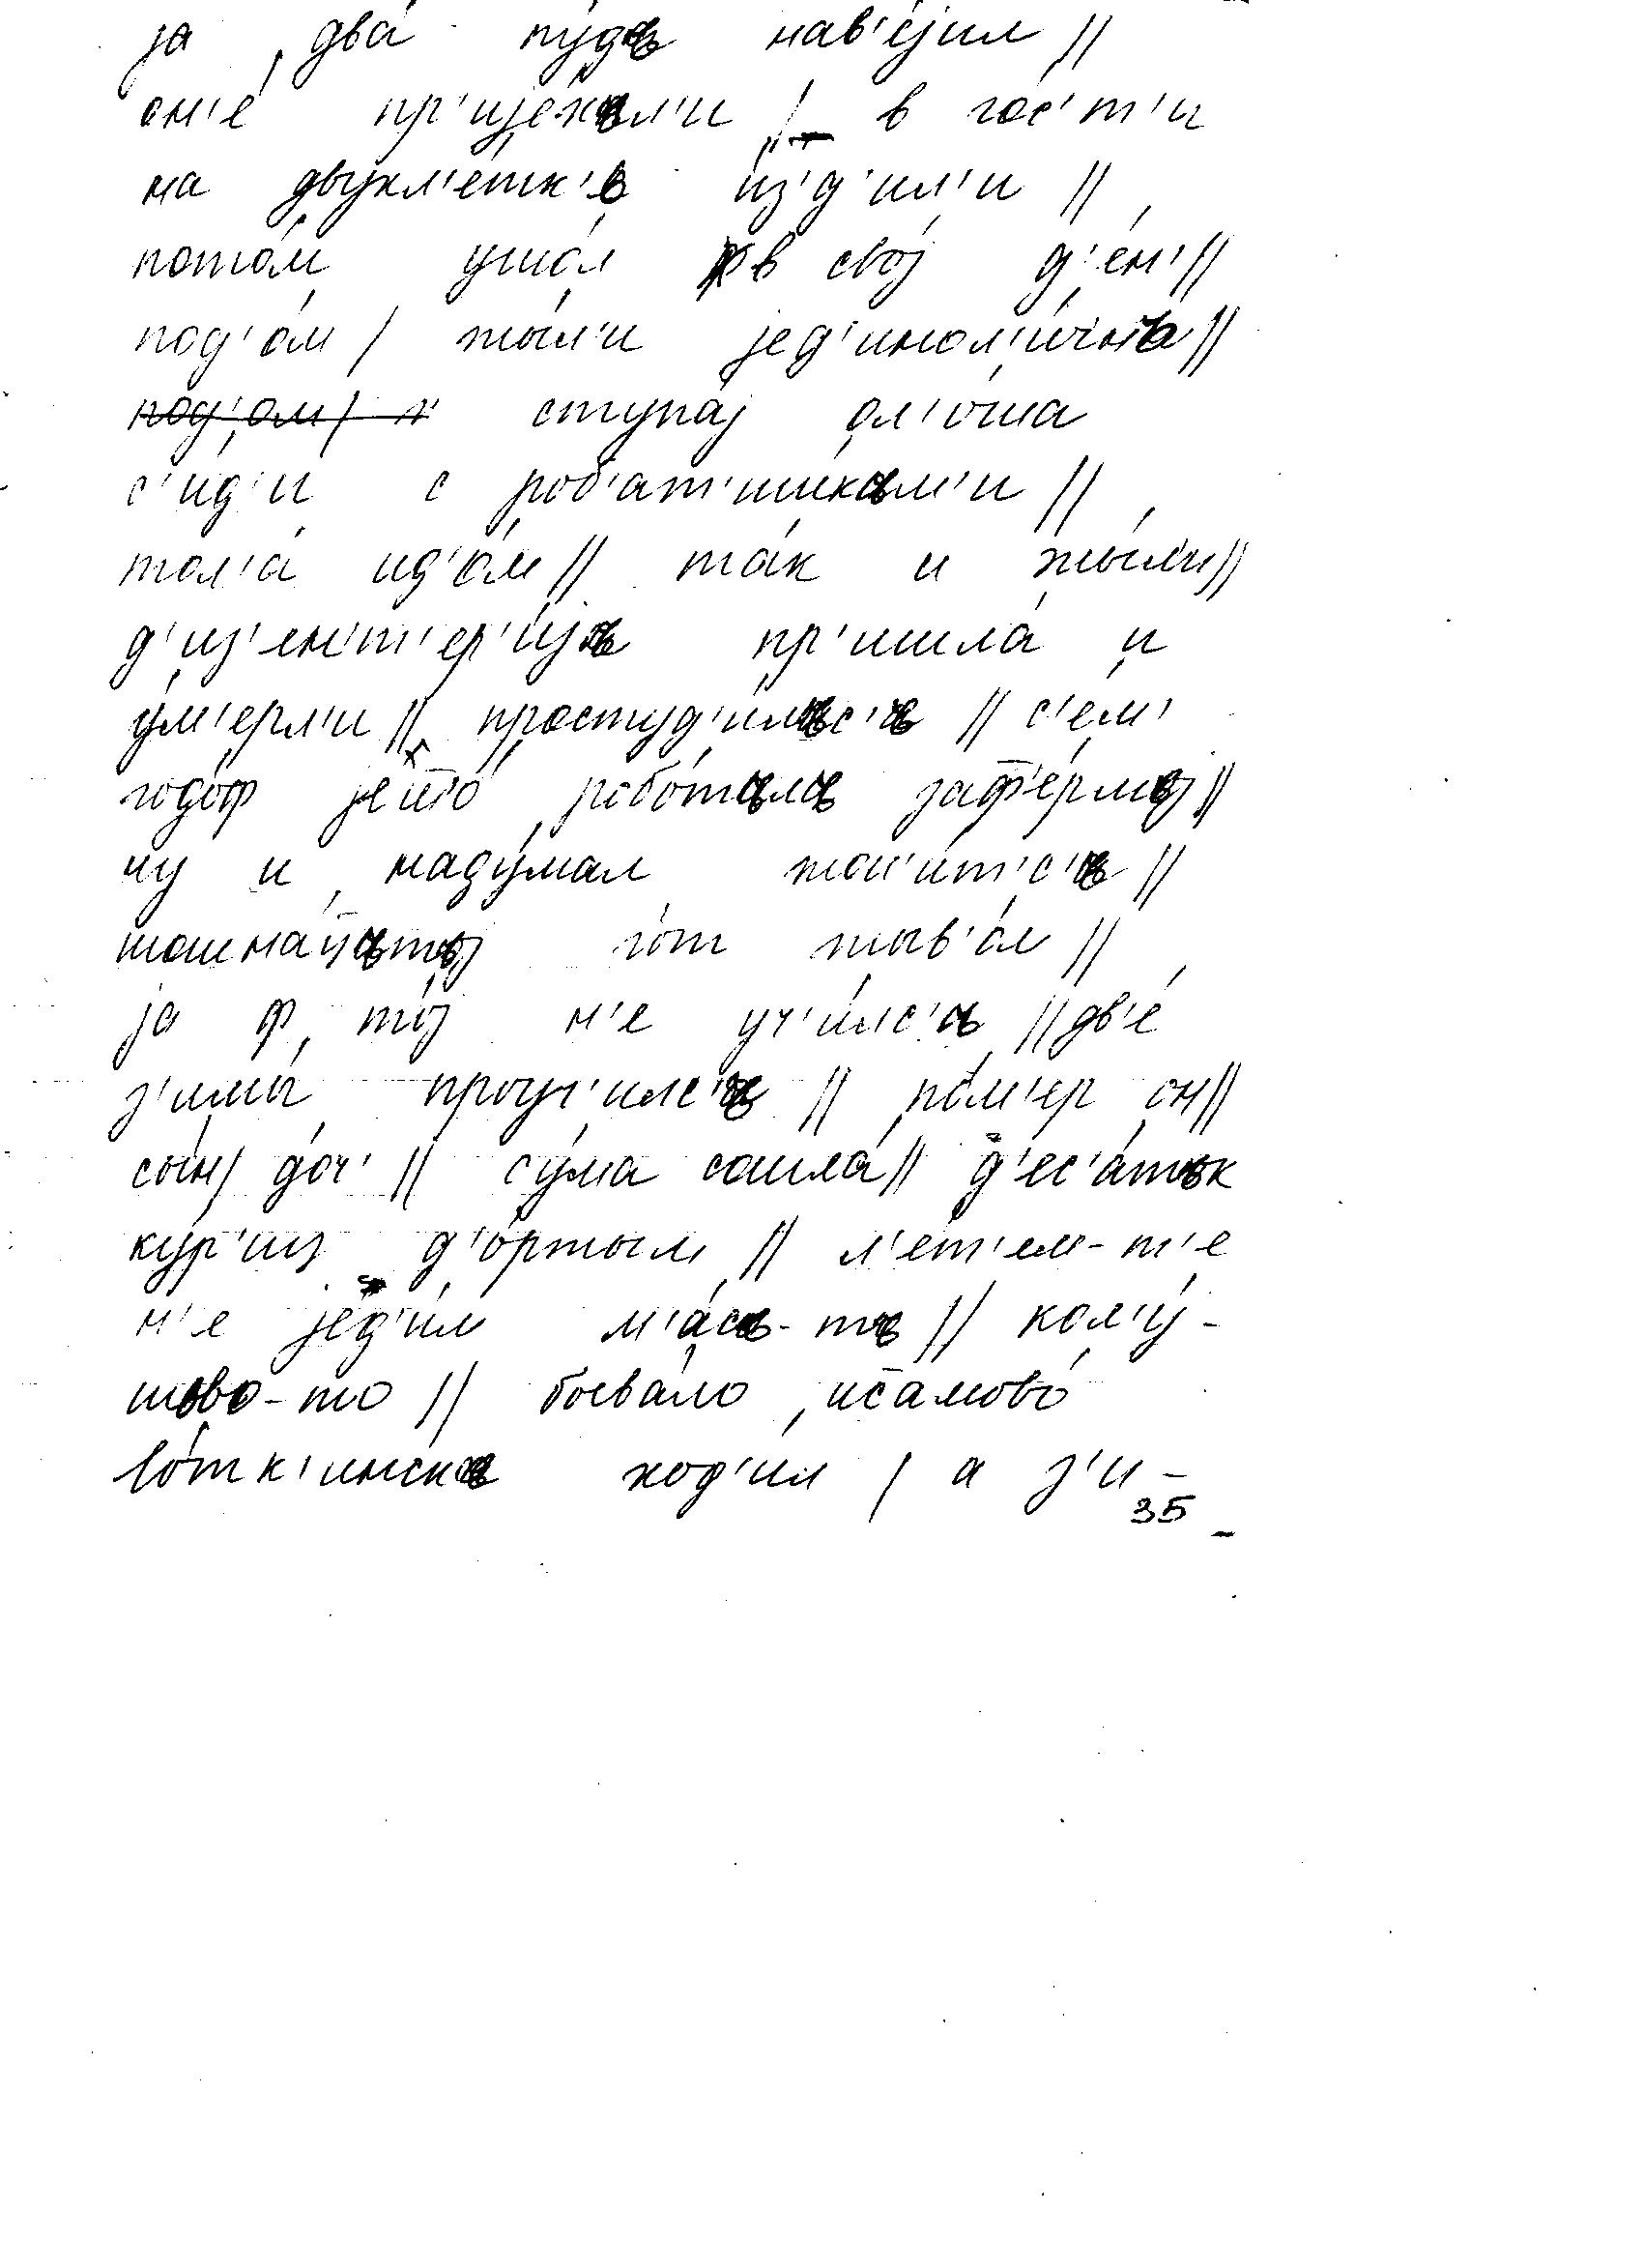 ја два́ пу́дъ нав'е́јил //
он'е́ пр'ије́хъл'и / в го́с'т'и
на двухл'е́тк'ь и́з'д'ил'и //
пото́м ушо́л в сво́ј д'е́н' //
под'о́м / жы́л'и јед'инол'и́чнъ //
ступа́ј ол'о́ша
с'ид'и́ с роб'ат'и́шкъм'и //
тол'а́ ид'о́м // та́к и жы́л'и //
д'из'ен'т'ер'и́јъ пр'ишла́ и
у́м'ерл'и // простуд'и́лъс'ъ // с'е́м'
годо́ф јешо́ робо́тълъ заф'е́рмъј //
ну и наду́мал жон'и́т'с'ъ //
шошна́цътъј го́т жыв'о́м //
ја ф то́ј н'е уч'и́лс'ъ // дв'е́
з'имы́ проуч'и́лс'ъ // по́м'ер он //
сы́н / до́ч' // сума сошла́ // д'ес'а́тък
ку́р'иц д'о́ржым // л'е́т'ем-т'е
н'е јед'и́м м'а́съ-тъ // кол'у́-
шъво-то // быва́ло исамово́
во́тк'инскъ ход'и́л / а з'и-
35